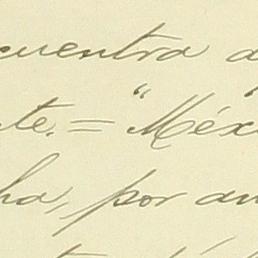 cuentra a
te. = "Méx
ha, por an